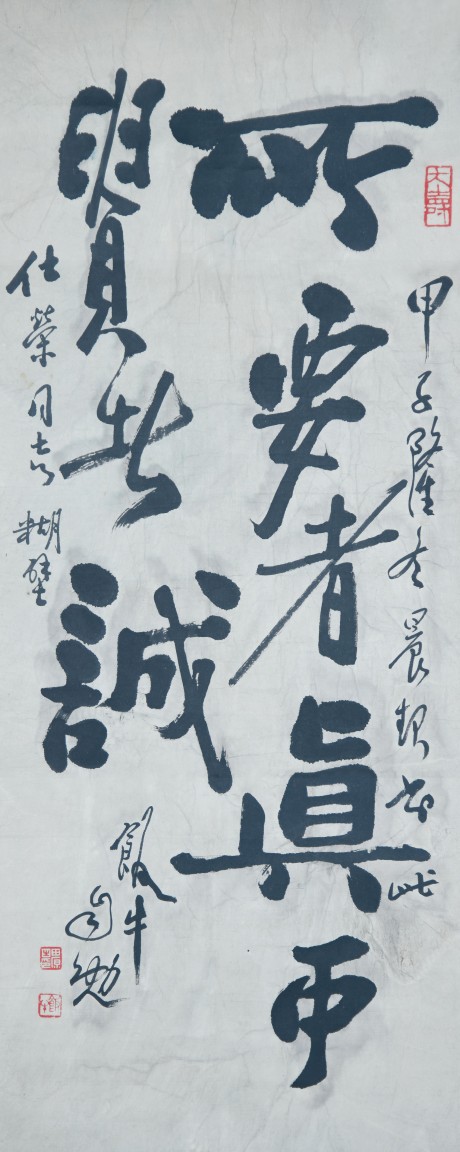 甲子隆冬晨起书此
所要者眞可
貴者誠
飯牛
自勉
仕榮同志糊壁